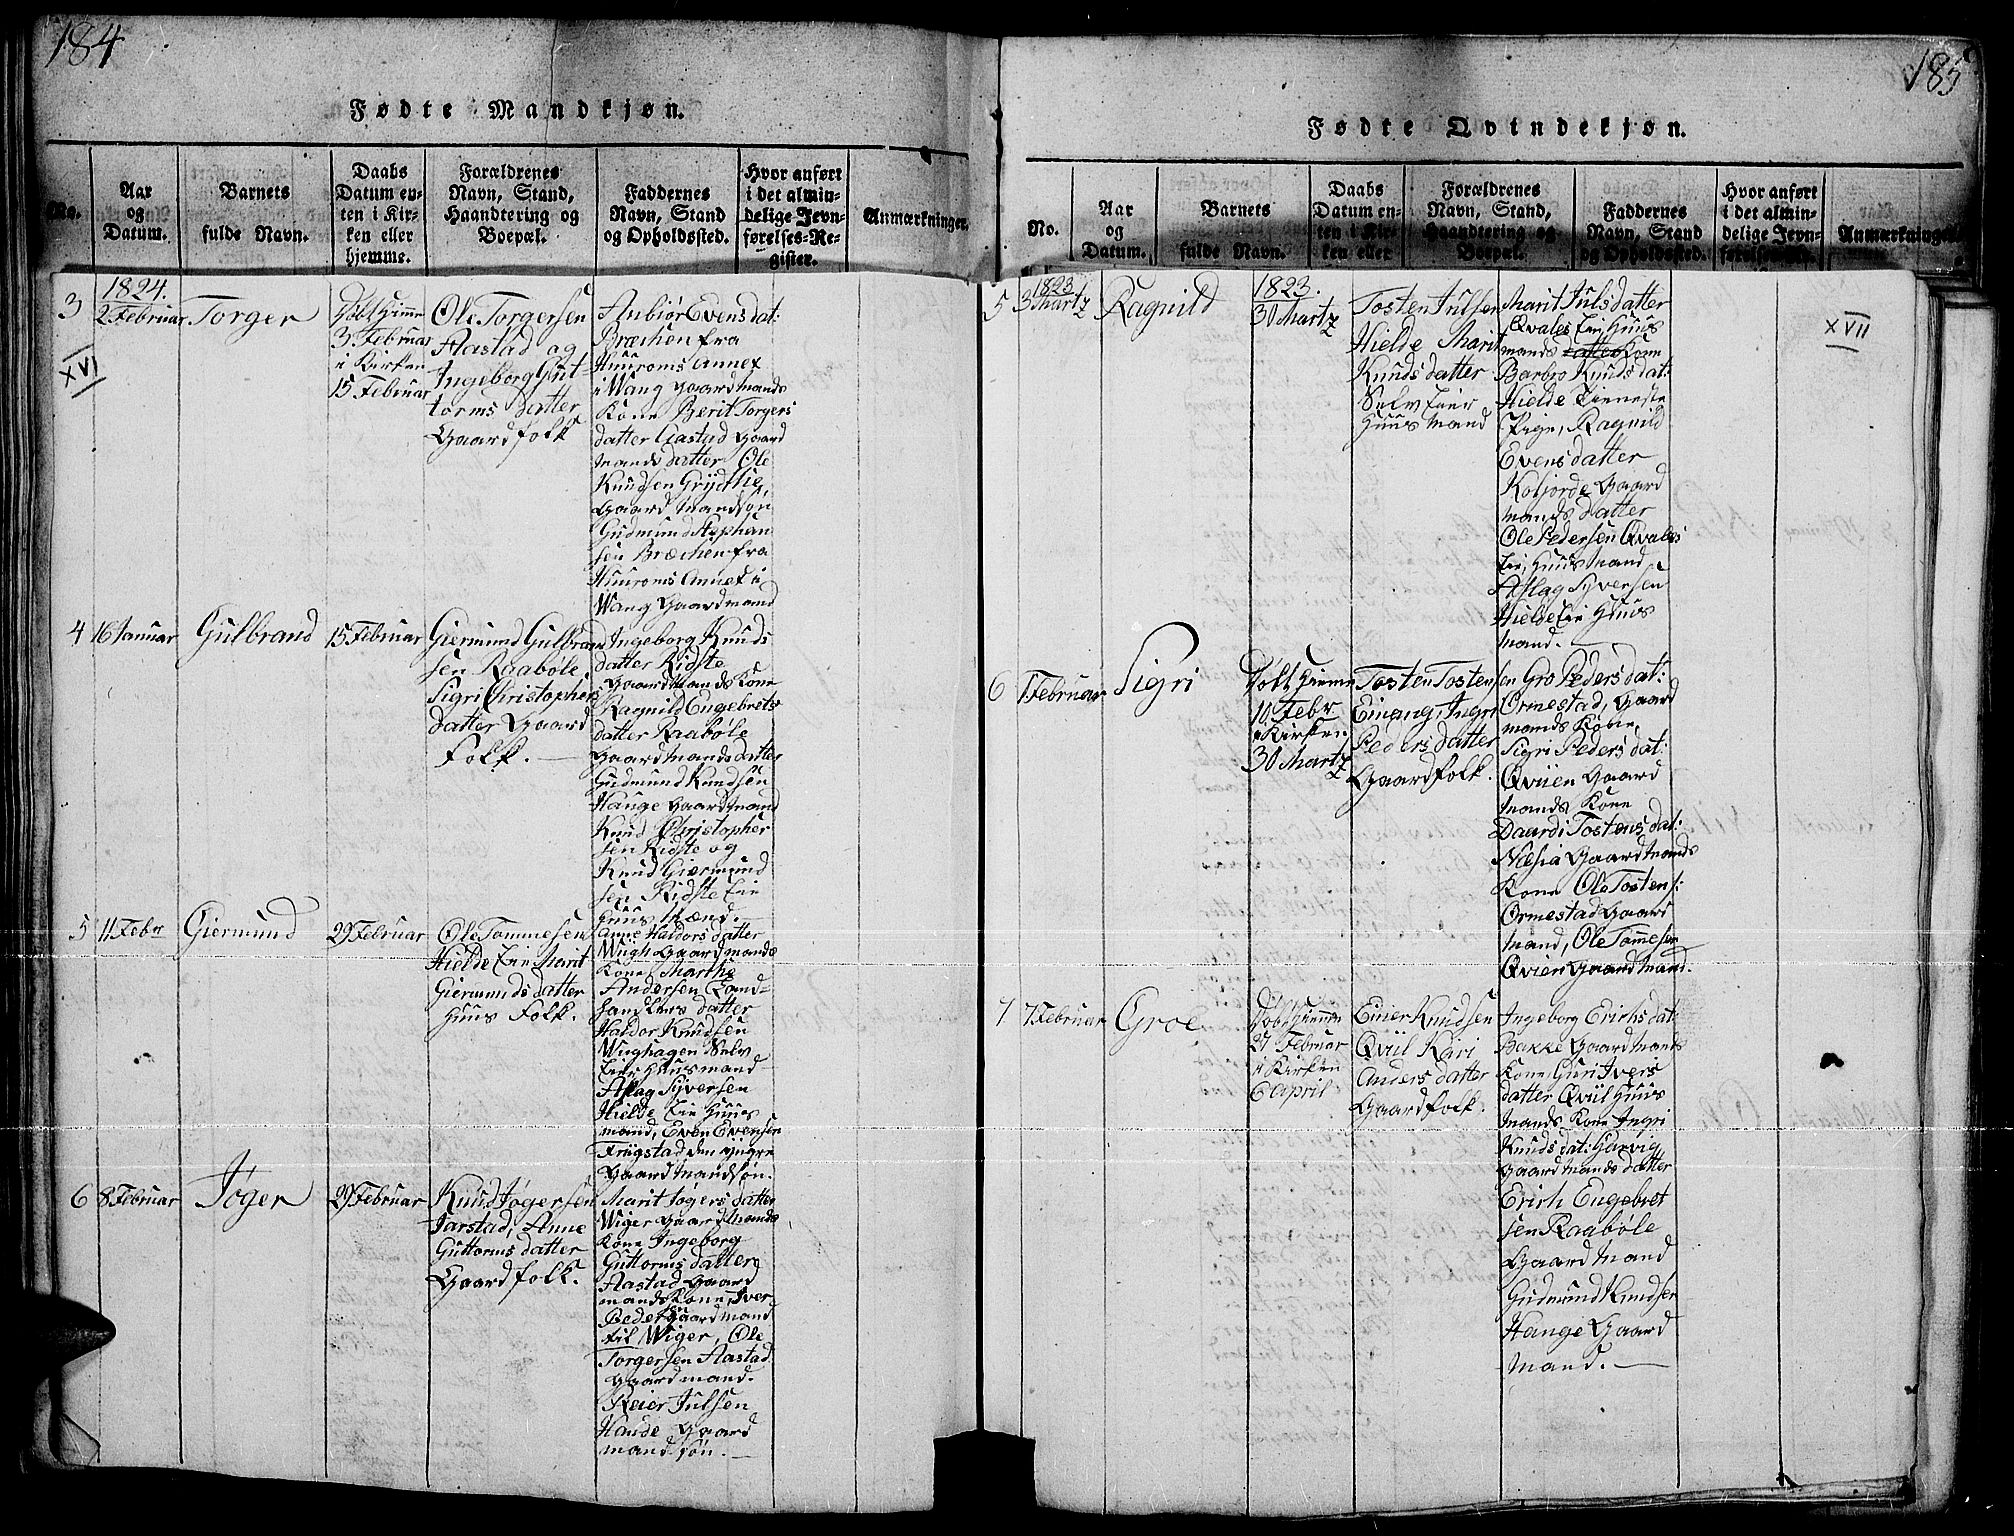 184
Fødte Mandkjøn.
No.
Aar
og
Datum.
Barnets
fulde Navn.
Daabs
Datum en-
ten i Kir-
ken eller
hjemme.
Forældrenes
Navn, Stand,
Haandtering og
Boepæl.
Faddernes
Navn, Stand
og Opholdssted.
Hvor anført
i det almin-
delige Jevn-
førelses-Re-
gister.
Anmærkninger.
3
XVI
1824.
2 Februar
Torger
Døbt Hiemme
3 Februar
i Kirken
15 Februar
Ole Torgersen
Aastad og
Ingeborg Gut-
torms datter
Gaardfolk
Anbiør Evensdat:
Bræchen fra
Huuroms Annex
i Wang Gaardmands
Kone Berit Torgers
datter Aastad Gaard
mands datter Ole
Knudsen Grydtlie,
Gaard mandsøn
Gudmund Stephan
sen Bræchen fra
Huuroms Annex i
Wang Gaardmand
4
16 Januar
Gulbrand
15 Februar
Giermund Gulbrand
sen Raabøle
Sigri Christophers
datter Gaard
Folk. —
Ingeborg Knuds
datter Ridste
Gaardmands Kone
Ragnild Engebrets
datter Raabøle
Gaardmands datter
Gudmund Knudsen
Hauge Gaardmand
Knud Christopher
sen Ridste og
Knud Giermund
sen Ridste Eie
Huus Mænd. —
5
11 Febr
Giermund
29 Februar
Ole Tommesen
Hielde Eie Marit
Giermunds datter
Huus Folk.
Anne Haldors datter
Wiigh Gaardmands
Kone Marthe
Andersen Land-
handlers datter
Haldor Knudsen
Wiighagen Selv
Eier Huusmand
Aslag Syversen
Hielde Eie Huus
mand, Even Evensen
Frøgstad den yngre
Gaard mandsøn.
6
8 Februar
Jøger
29 Februar
Knud Jøgersen
Jarstad, Anne
Guttorms datter
Gaardfolk.
Marit Jøgers datter
Wiger Gaardmands
Kone Ingeborg
Guttorms datter
Aastad Gaard
mands Kone, Iver
Gaardmand
til Wiger, Ole
Torgersen Aastad
Gaardmand.
Reier Julsen
Haude Gaard
mandsøn. —
185
Fødte Qvindekjøn.
No.
Aar
og
Datum.
Barnets
fulde Navn.
Daabs
Datum en-
ten i Kir-
ken eller
Forældrenes
Navn, Stand,
Haandtering og
Boepæl.
Faddernes
Navn, Stand
og Opholdssted.
Hvor anført
i det almin-
delige Jevn-
førelses-Re-
Anmærkninger.
5
1823
3 Martz
Ragnild
1823.
30 Martz
Tosten Julsen
Hielde Marit
Knuds datter
Selv Eier
Huusmand
Marit Julsdatter
Qvales Eie Huus
mands datter Kone
Barbro Knudsdat:
Hielde Tieneste
Pige, Ragnild
Evensdatter
Koljorde Gaard
mands datter
Ole Pedersen Qvales
Eie, Huusmand
Aslag Syversen
Hielde Eie Huus
mand. —
XVII
6
1 Februar
Sigri
Døbt Hiemme
10 Febr.
i Kirken
30 Martz
Tosten Tostensen
Einang, Ingri
Peders datter
Gaardfolk.
Gro Pedersdat:
Ormestad, Gaard
mands Kone,
Sigri Pedersdat:
Qviien Gaard
mands Kone
Daardi Tostensdat:
Næsia Gaardmands
Kone Ole Tostens:
Ormestad Gaard
mand, Ole Tomesen
Qvien Gaardmand.
7
7 Februar
Groe
Døbt Hiemme
27 Februar
i Kirken
6 April
Einer Knudsen
Qviil Kari
Anders datter
Gaardfolk.
Ingeborg Erichsdat:
Bakke Gaardmands
Kone, Guri Ivers
datter Qviil Huus
mands Kone Ingri
Knudsdat: Garvig
Gaardmands datter
Erich Engebret
sen Raabøle
Gaard mand
Gudmund Knudsen
Hauge Gaard
mand. —